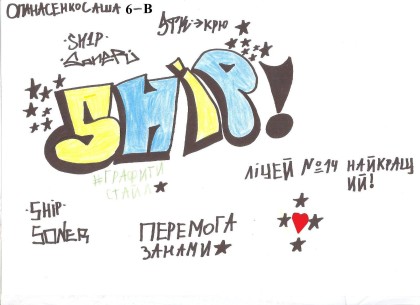 ОПАНАСЕНКО САША 6-В
·SHIP·
SONER
5TK→КРЮ
SHiP!
#ГРАФИТИ
СТАЙЛ
ЛІЦЕЙ №14 НАЙКРАЩ
ИЙ!
·SHiP·
SONER
ПЕРЕМОГА
ЗАНАМИ